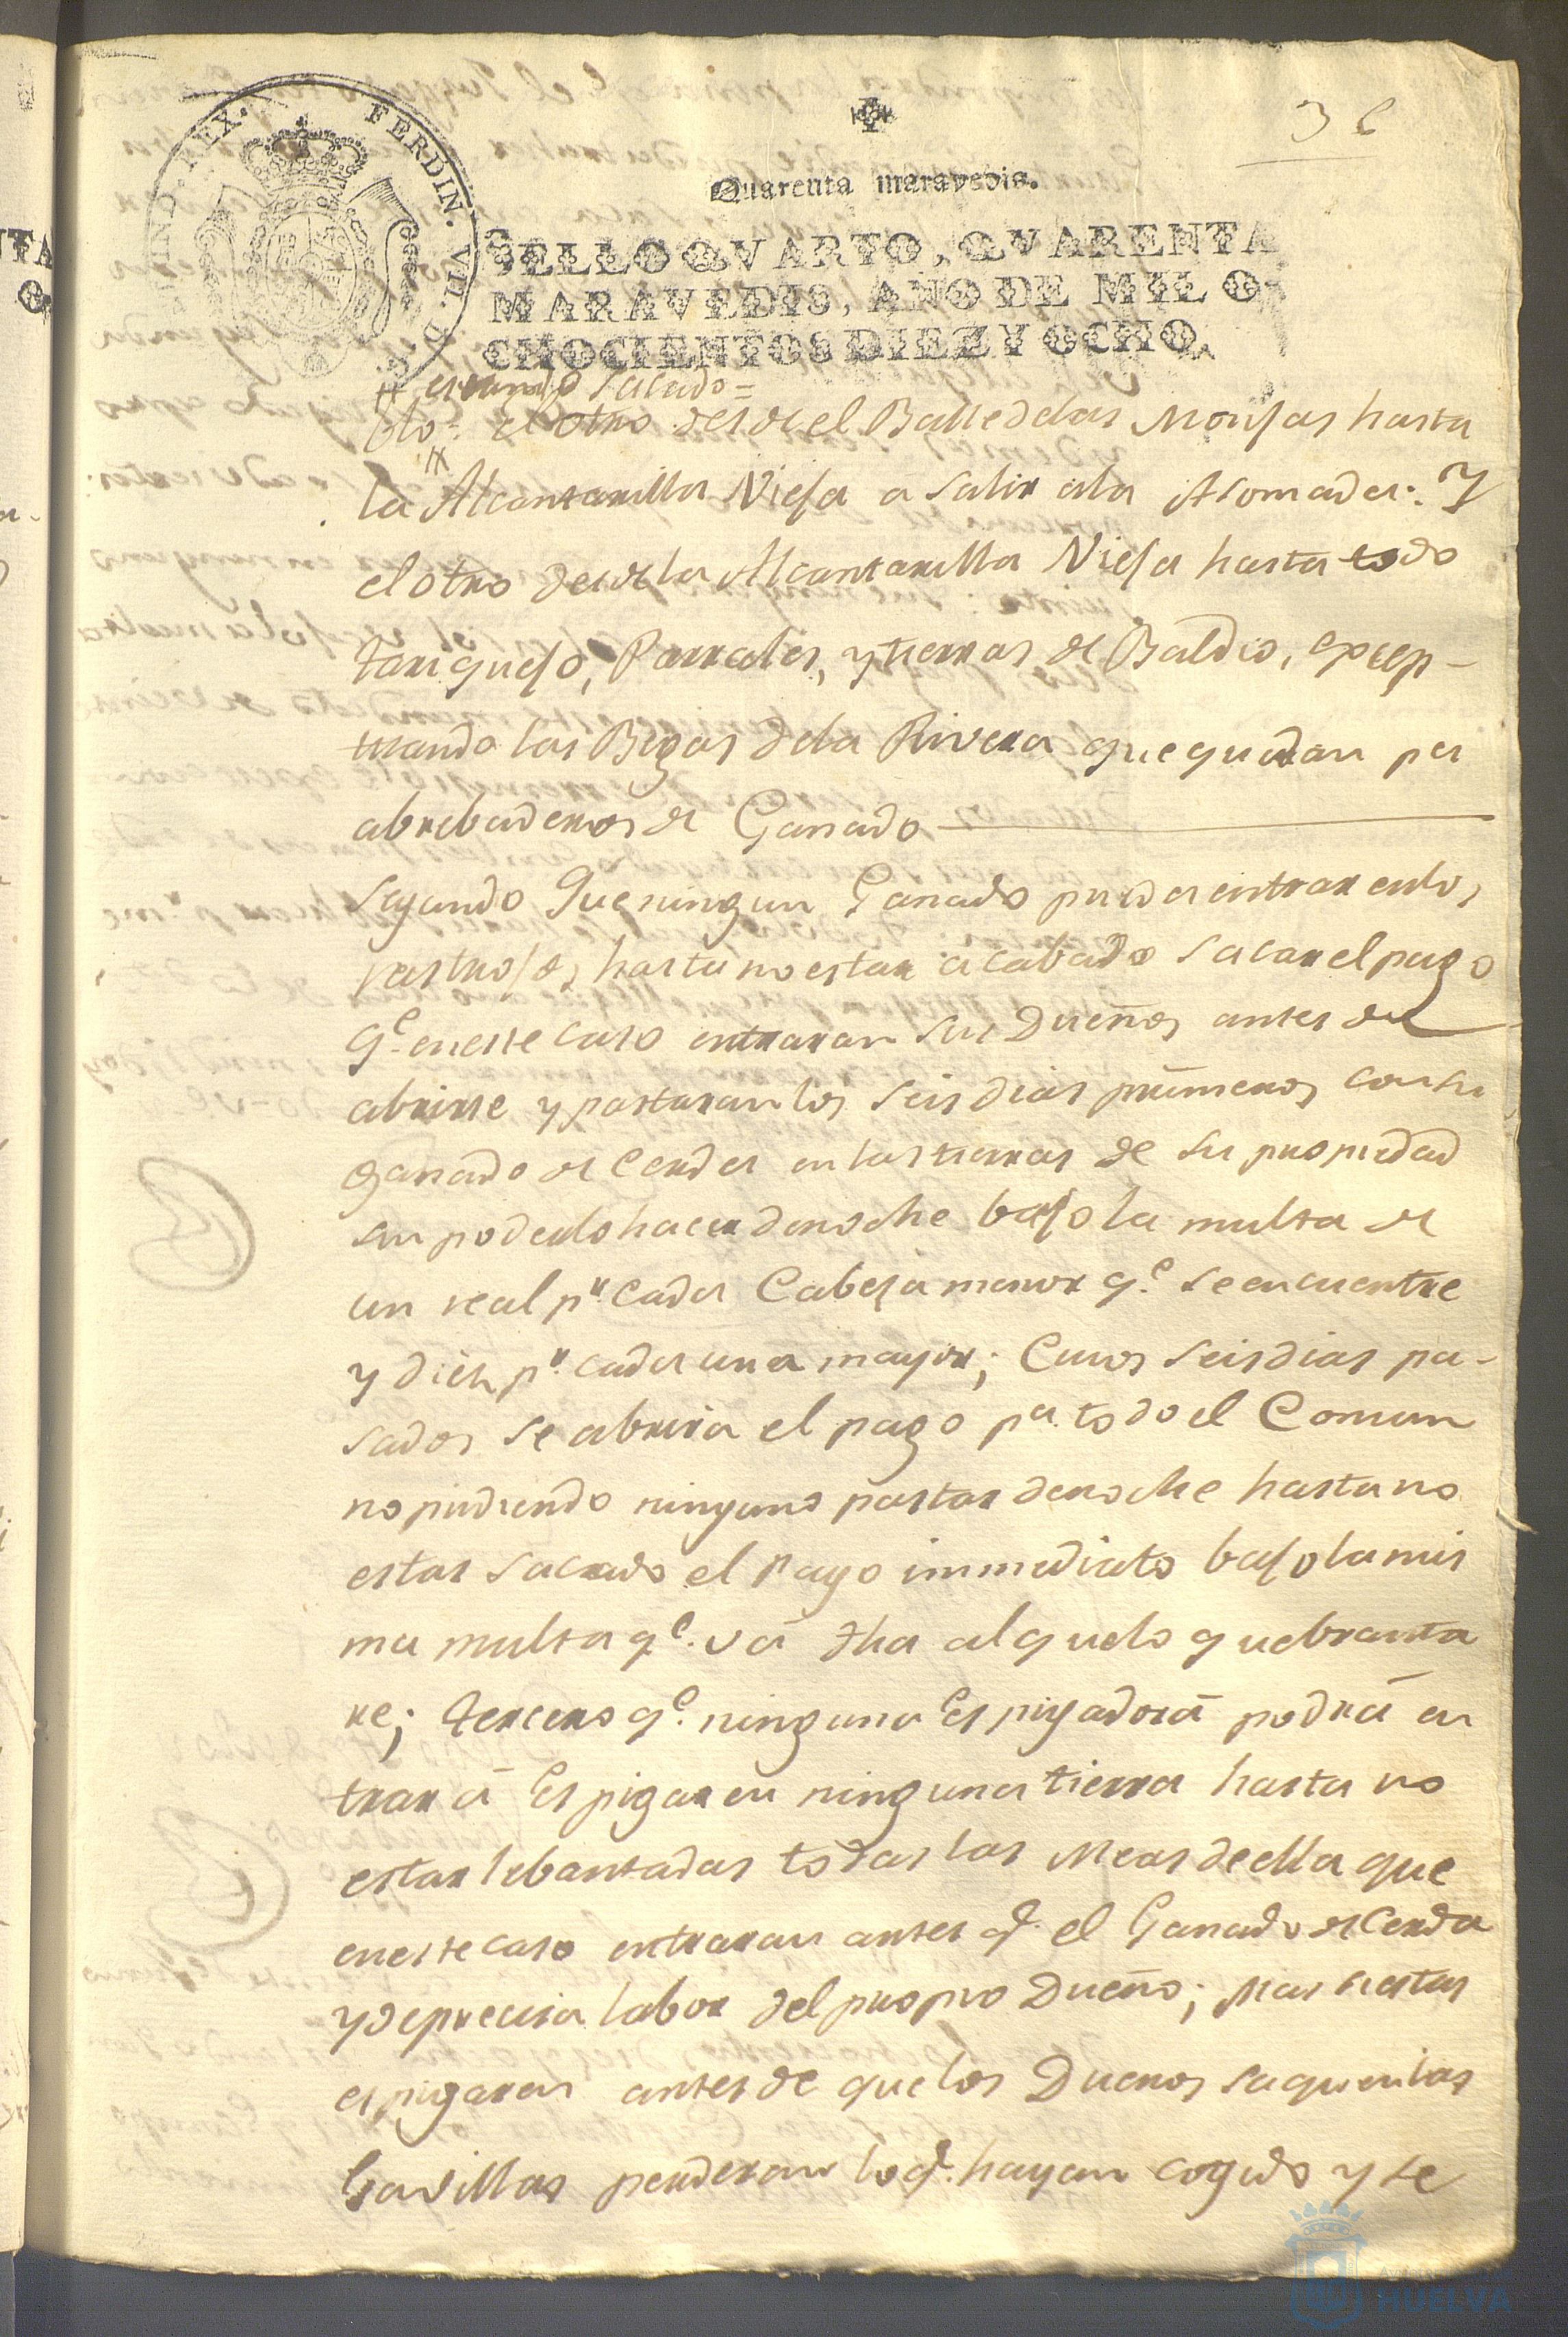 36
Quarenta maravedis.
SELLO QVARTO, QVARENTA
MARAVEDIS, AÑO DE MIL O-
CHOCIENTOS DIEZ Y OCHO.
FERDIN. VII. D. G. HISP. ET IND. REX.
estando sacado =
blo = el otro desde el Balle delas Monjas hasta
la Alcantarilla Vieja a salir ala Asomada: Y
el otro desde la Alcantarilla Vieja hasta todo
tariquejo, Parrales, y tierras de Baldio, excep-
tuando las Begas dela Rivera que quedan por
abrebaderos de Ganado
Segundo Que ningun Ganado pueda entrar enlos
rastrojos hasta no estar acabado sacar el pago
qe. eneste caso entraran sus Dueños antes de
abrirse y pastaran los seis dias primeros con su
ganado de Cerda en las tierras de su propiedad
sin poderlo hacer denoche bajo la multa de
un real pr. cada Cabeza menor qe. se encuentre
y diez pr. cada una mayor; Cuios seis dias pa-
sados se abrira el pago pa. todo el Comun
no pudiendo ninguno pastar denoche hasta no
estar sacado el Pago immediato bajo la mis
ma multa qe. vá dha al quelo quebranta
re; tercero qe. ninguna Espigadorá podrá en
trar á Espigar en ninguna tierra hasta no
estar lebantadas todas las Meas de ella que
eneste caso entraran antes q. el Ganado de Cerda
y deprecisa labor del propio Dueño; Mas si estas
espigaren antes de que los Duenos saquen las
Gavillas perderan lo q. hayan cogido y se
HUELVA